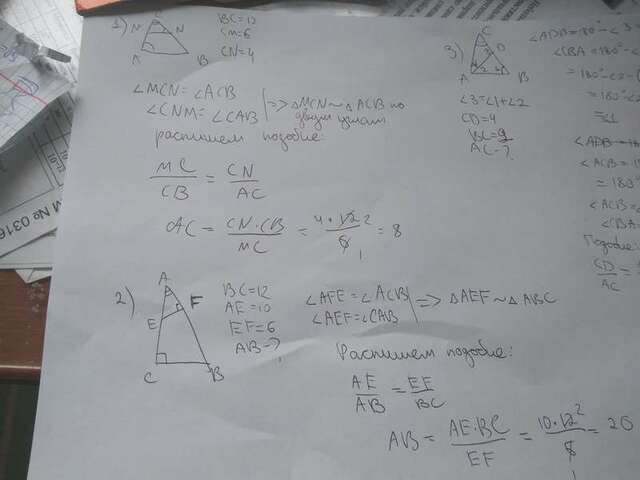 1) C
N N
A B
BC=12
CM=6
CN=4
∠MCN = ∠ACB
∠CNM = ∠CAB | => △MCN ~ △ACB по двум углам
распишем подобие:
MC/CB = CN/AC
AC = CN·CB/MC = 4·12 2/6 1 = 8
2) A
F
E
C B
BC=12
AE=10
EF=6
AB-?
∠AFE = ∠ACB
∠AEF = ∠CAB | => △AEF ~ △ABC
Распишем подобие:
AE/AB = EF/BC
AB = AE·BC/EF = 10·12 2/6 1 = 20
3) C
D
A B
∠3=∠1+∠2
CD=4
BC=9
AC-?
∠ADB=180°-∠3
∠CBA=180°-∠
=180°-∠2-(
=180°-∠2
=∠1
∠ADB=
∠ACB=1
=180°
∠ACB=
∠CBA=
Подобие:
CD/AC =
M № 0316